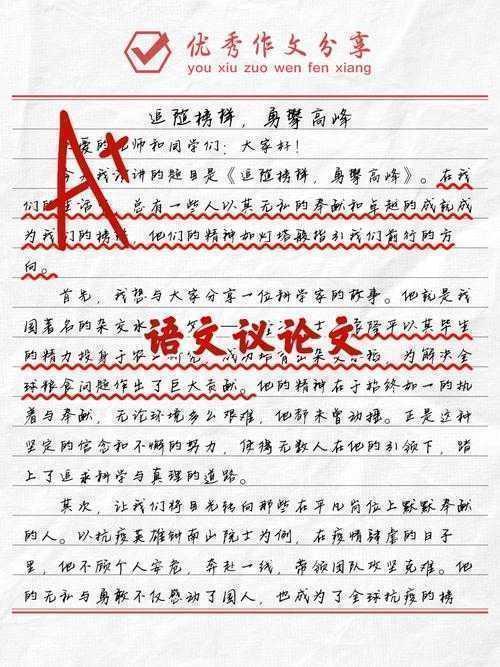 优秀作文分享
you xiu zuo wen fen xiang
A+
追随榜样，勇攀高峰
爱的 师和同学们：大家好！
今 我 讲的题目是《追随榜样，勇攀高峰》。在我
们的生活 总有一些人以其无私的奉献和卓越的成就成
为我们的榜样，他们的精神如灯塔般指引我们前行的方
向。
首先，我想与大家分享一位科学家的故事。他就是我
国著名的杂交水 士 隆平以其毕生
的精力投身于农 研究，成功培育出杂交水稻，为解决全
语文议论文
球粮食问题作出了巨大贡献。他的精神在于始终如一的执
着与奉献，无论环境多么艰难，他都未曾动摇。正是这种
坚定的信念和不懈的努力，使得无数人在他的引领下，踏
上了追求科学与真理的道路。
其次，让我们将目光转向那些在平凡岗位上默默奉献
的人。以抗疫英雄钟南山院士为例，在疫情肆虐的日子
里，他不顾个人安危，奔赴一线，带领团队攻坚克难。他
的无私与勇敢不仅感动了国人，也成为了全球抗疫的榜